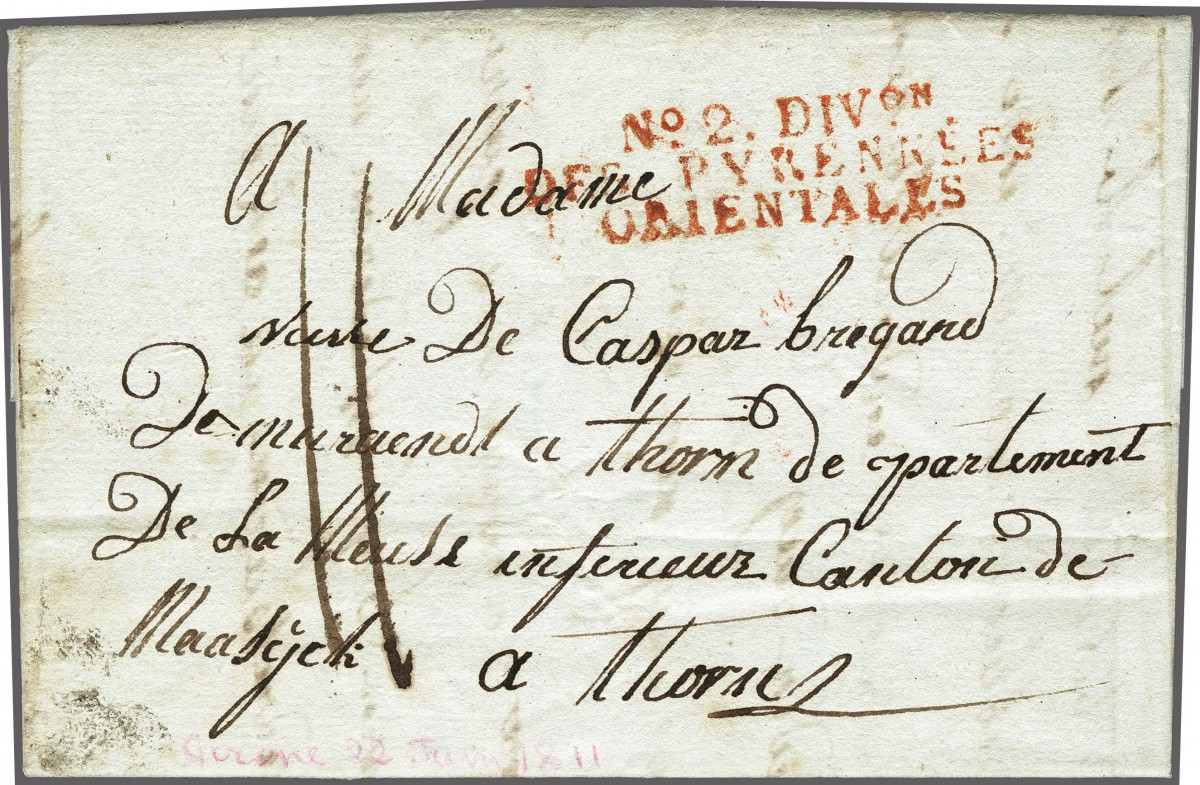 No 2. DIVon
DES PYRENNÉES
ORIENTALES
A Madame
veuve De Caspar bregand
De muraendt a thorn de partement
De La Meuse inferieur Canton de
Maasÿck a thorn
Girone 22 Juin 1811